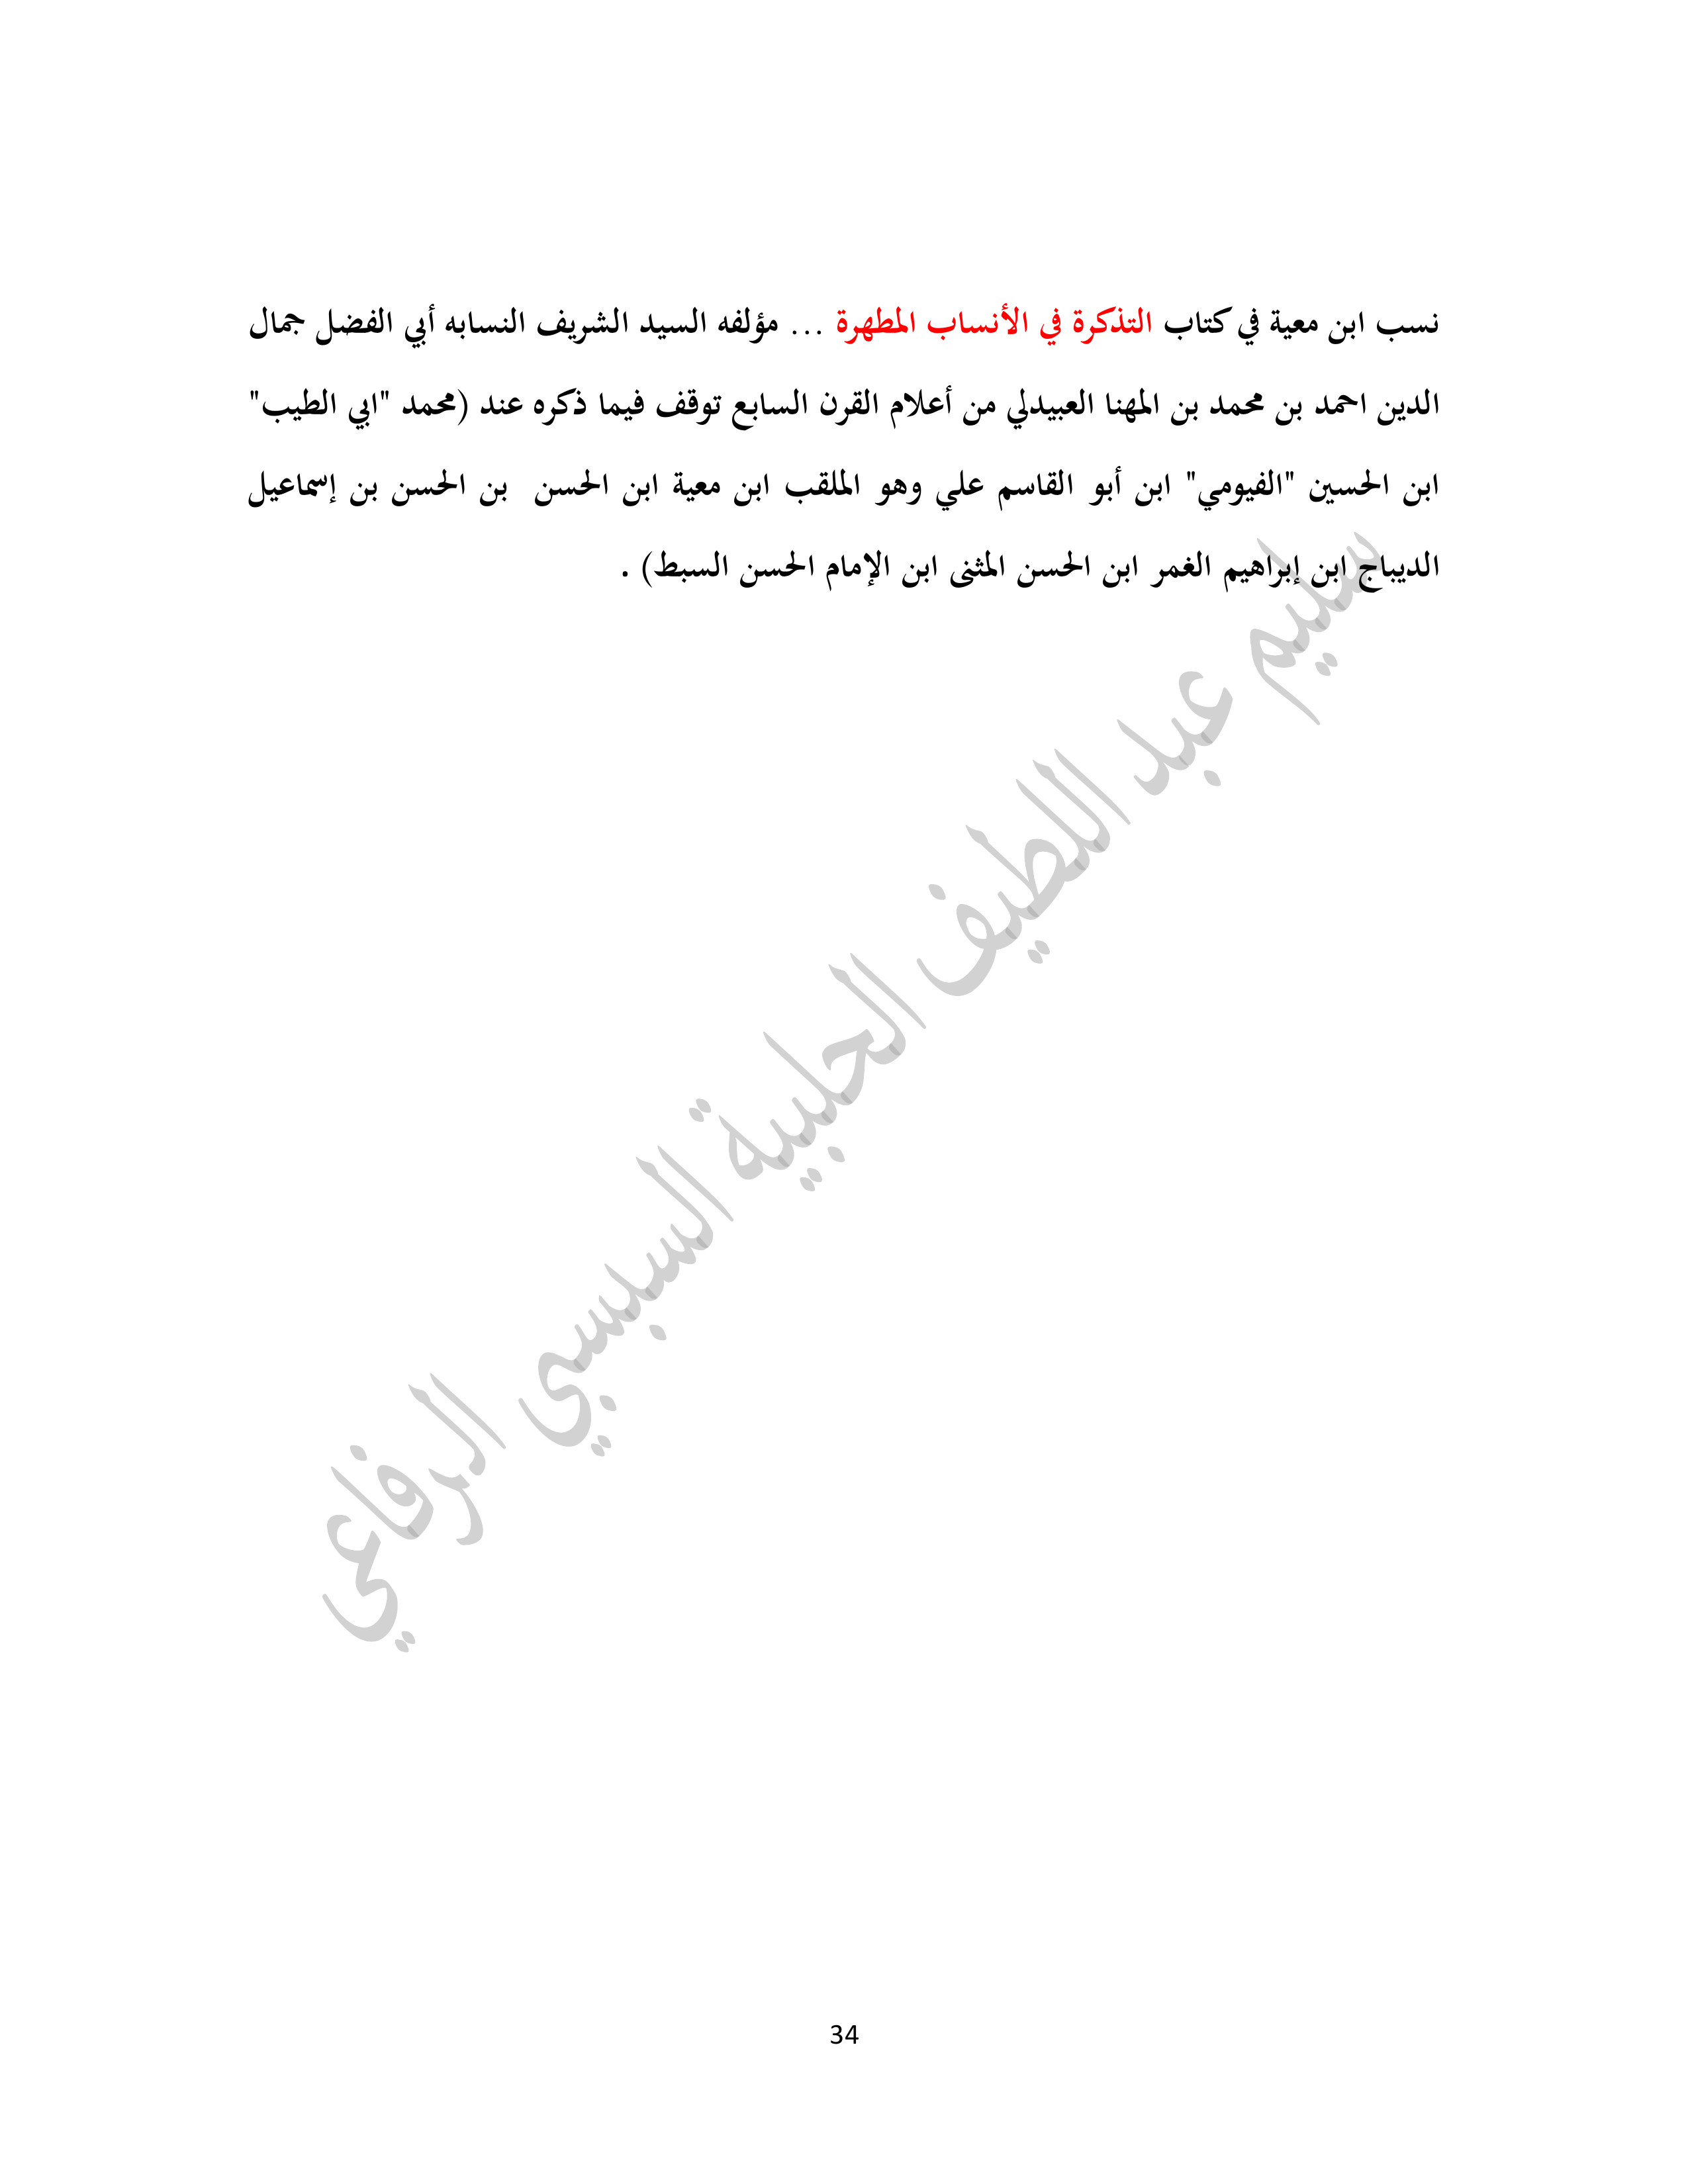 نسب ابن معية في كتاب التذكرة في الأنساب المطهرة ... مؤلفه السيد الشريف النسابه أبي الفضل جمال
الدين احمد بن محمد بن المهنا العبيدلي من أعلام القرن السابع توقف فيما ذكره عند (محمد "ابي الطيب"
ابن الحسين "الفيومي" ابن أبو القاسم علي وهو الملقب ابن معية ابن الحسن بن الحسن بن إسماعيل
الديباج ابن إبراهيم الغمر ابن الحسن المثنى ابن الإمام الحسن السبط) .
سليم عبد اللطيف الحلبية السبسبي الرفاعي
34